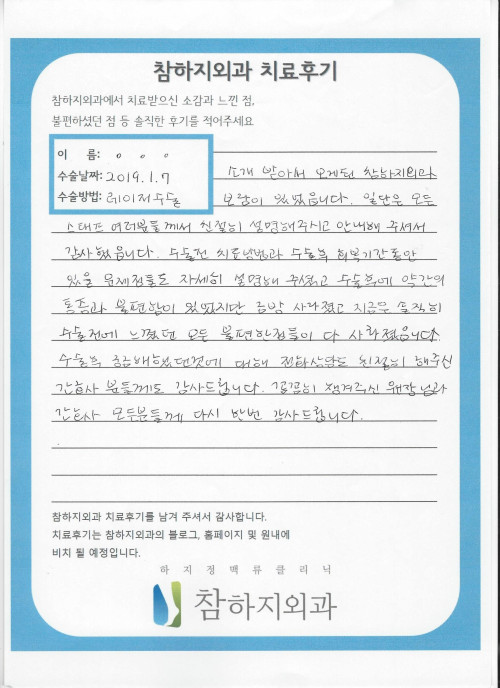 참하지외과 치료후기
참하지외과에서 치료받으신 소감과 느낀 점,
불편하셨던 점 등 솔직한 후기를 적어주세요
이 름: o o o
수술날짜: 2019.1.7
수술방법: 레이저수술
소개 받아서 오게된 참하지외과
보람이 있었습니다. 일단은 모든
스태프 여러분들께서 친절히 설명해주시고 안내해 주셔서
감사했습니다. 수술전 치료방법과 수술후 회복기간동안
있을 문제점들도 자세히 설명해 주셨고 수술후에 약간의
통증과 불편함이 있었지만 금방 사라졌고 지금은 솔직히
수술전에 느꼈던 모든 불편한점들이 다 사라졌습니다.
수술후 궁금해했던것에 대해 전화상담도 친절히 해주신
간호사 분들께도 감사드립니다. 꼼꼼히 챙겨주신 원장님과
간호사 모든분들께 다시 한번 감사드립니다.
참하지외과 치료후기를 남겨 주셔서 감사합니다.
치료후기는 참하지외과의 블로그, 홈페이지 및 원내에
비치 될 예정입니다.
하지정맥류클리닉
참하지외과